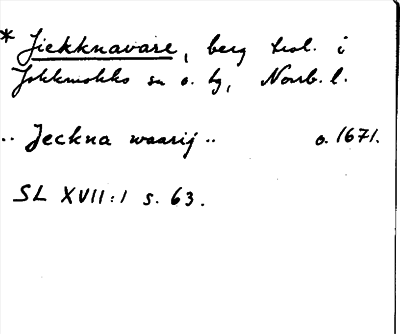 * Jiekknavare, berg trol. i
Jokkmokks sn o. tg, Norrb. l.
.. Jeckna waarij .. o. 1671.
SL XVII:1 s. 63.